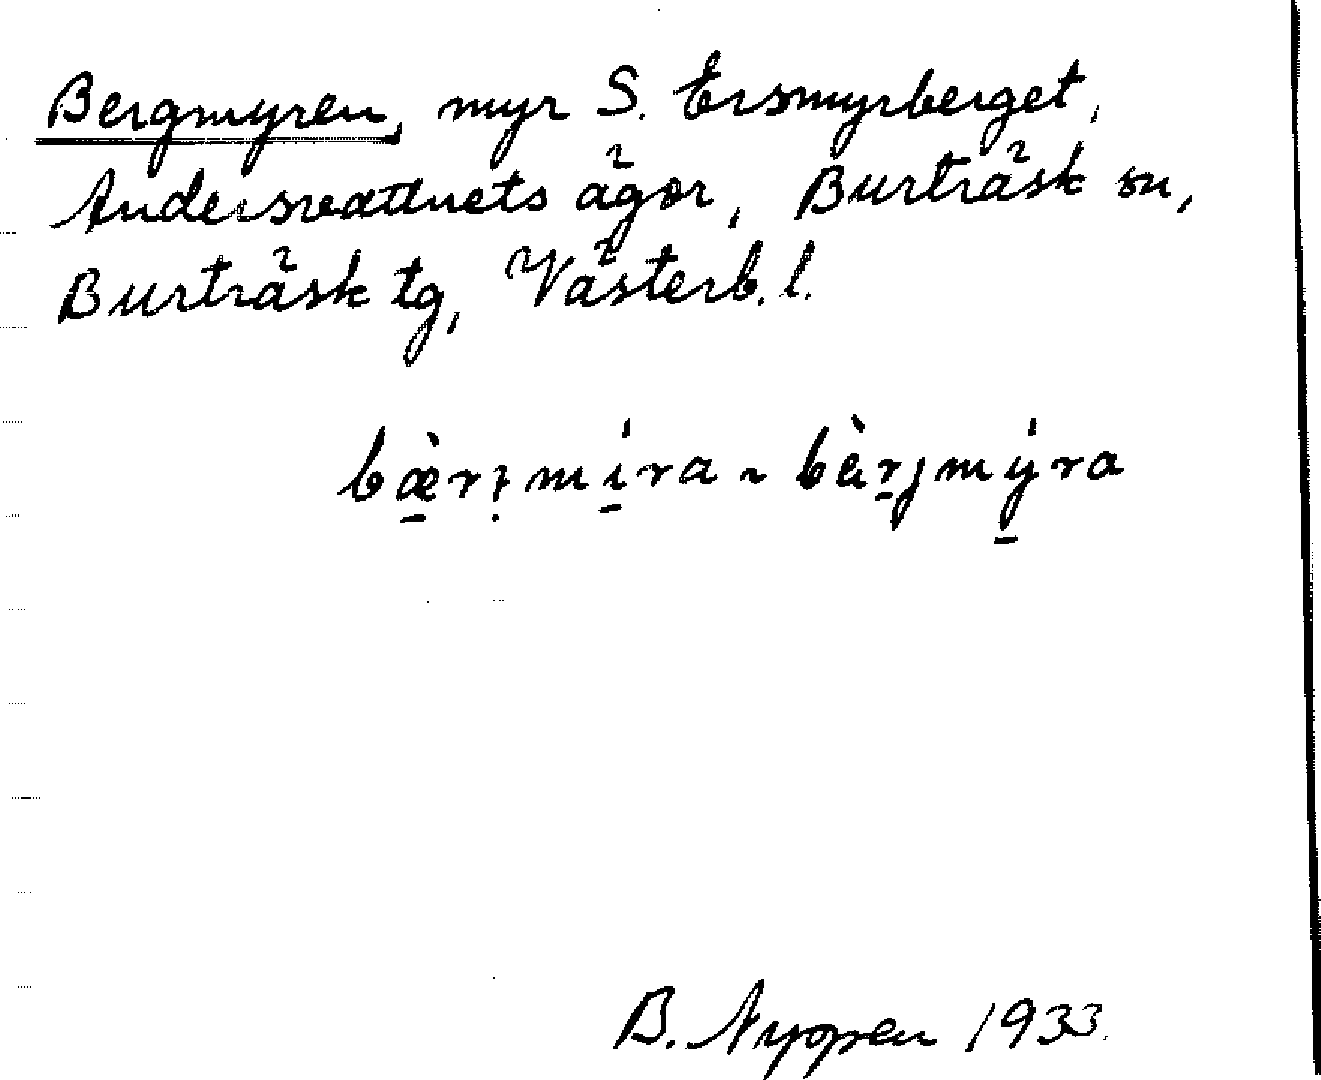 Bergmyren, myr S. Ersmyrberget,
Andersvattnets ägor, Burträsk sn,
Burträsk tg, Västerb. l.
bæ̠̀rɟ̣mí̠ra ~ bær̠jmý̠ra
B. Nyppen 1933.